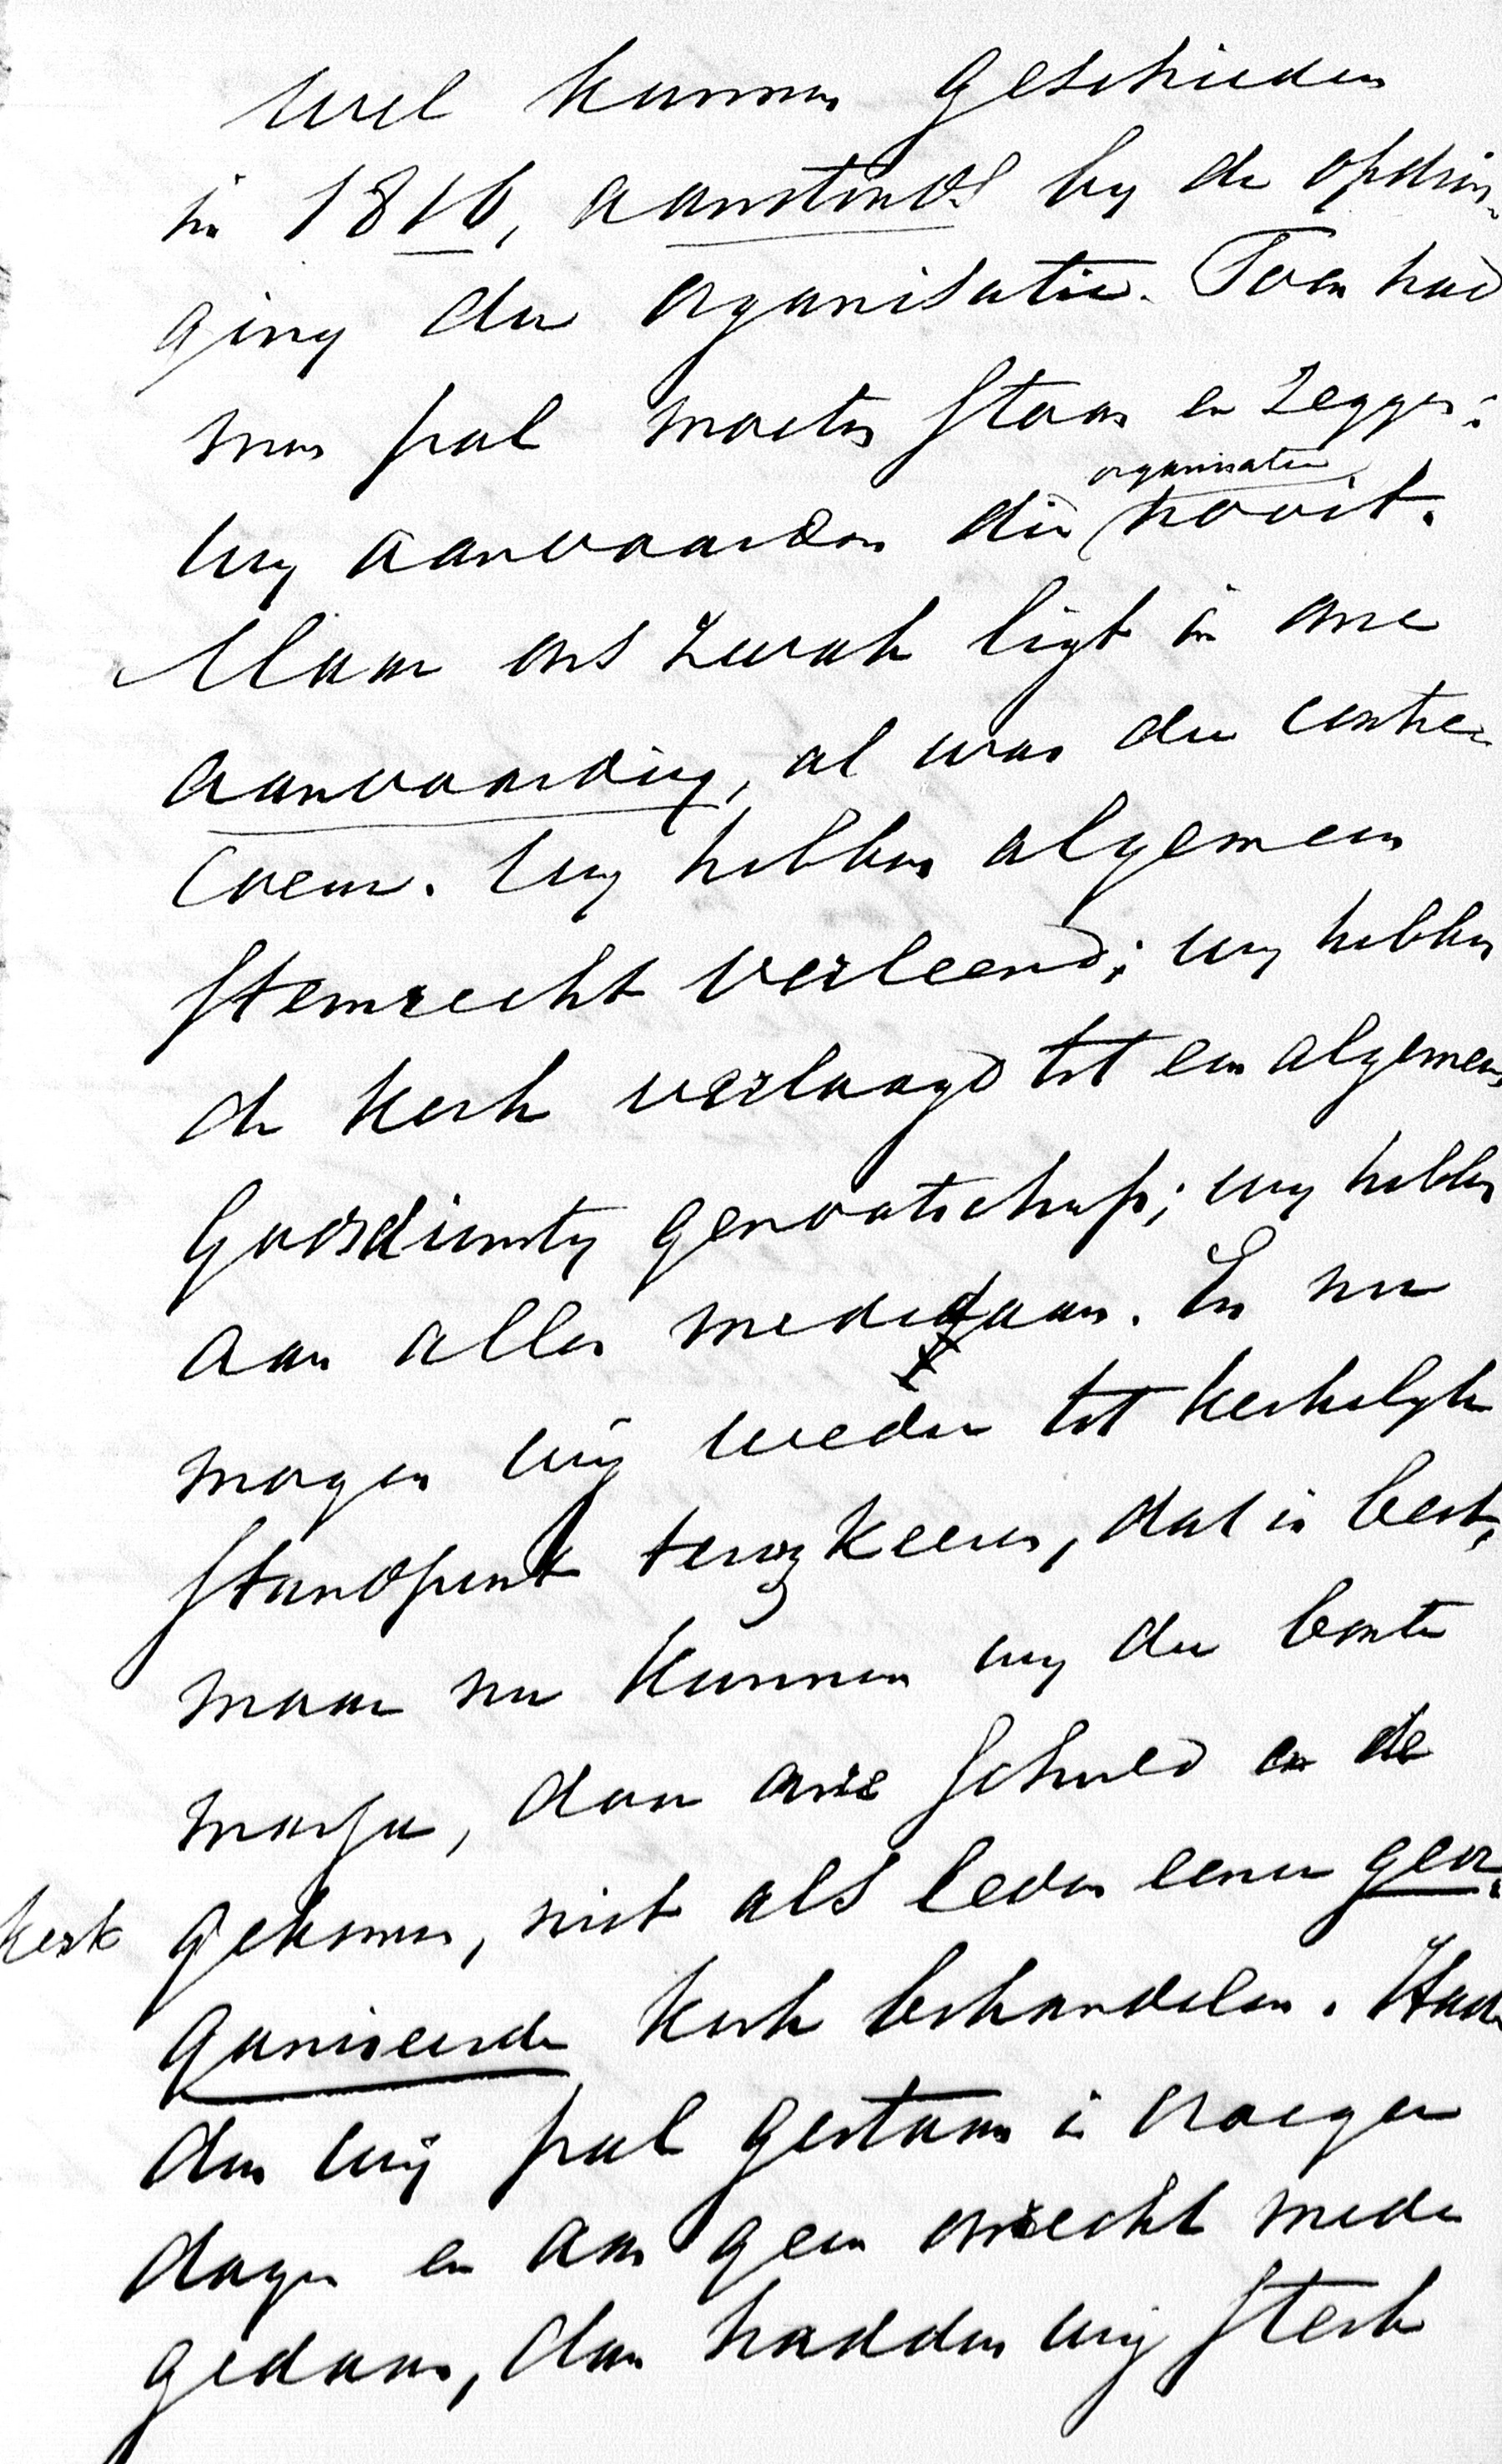 wel kunnen geschieden
in 1816, aanstonds by de opdrin-
ging der organisatie. Toen had
men pal moeten staan en zeggen:
wy aanvaarden die organisatie nooit.
Maar ons zwak ligt in onze
aanvaarding, al was die contre
coeur. Wy hebben algemeen
stemrecht verleend; wy hebben
de kerk verlaagd tot een algemeen
Godsdienstig genootschap; wy hebben
aan alles medegedaan. En nu
mogen wij weder tot kerkelyk
standpunt terugkeeren, dat is best,
maar nu kunnen wy die bonte
massa, door onze schuld in de
kerk gekomen, niet als leden eener geor-
ganiseerde kerk behandelen. Had-
den wij pal gestaan in vroeger
dagen en aan geen onrecht mede
gedaan, dan hadden wij sterk